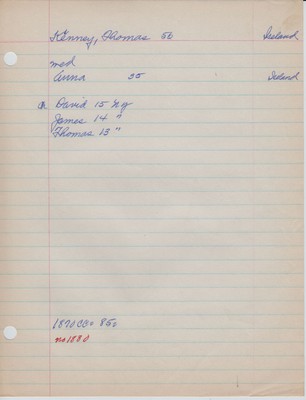 Kenney, Thomas 50 Ireland
med
Anna 35 Ireland
ch David 15 Ny
James 14 "
Thomas 13 "
1870 CCo 850
no 1880